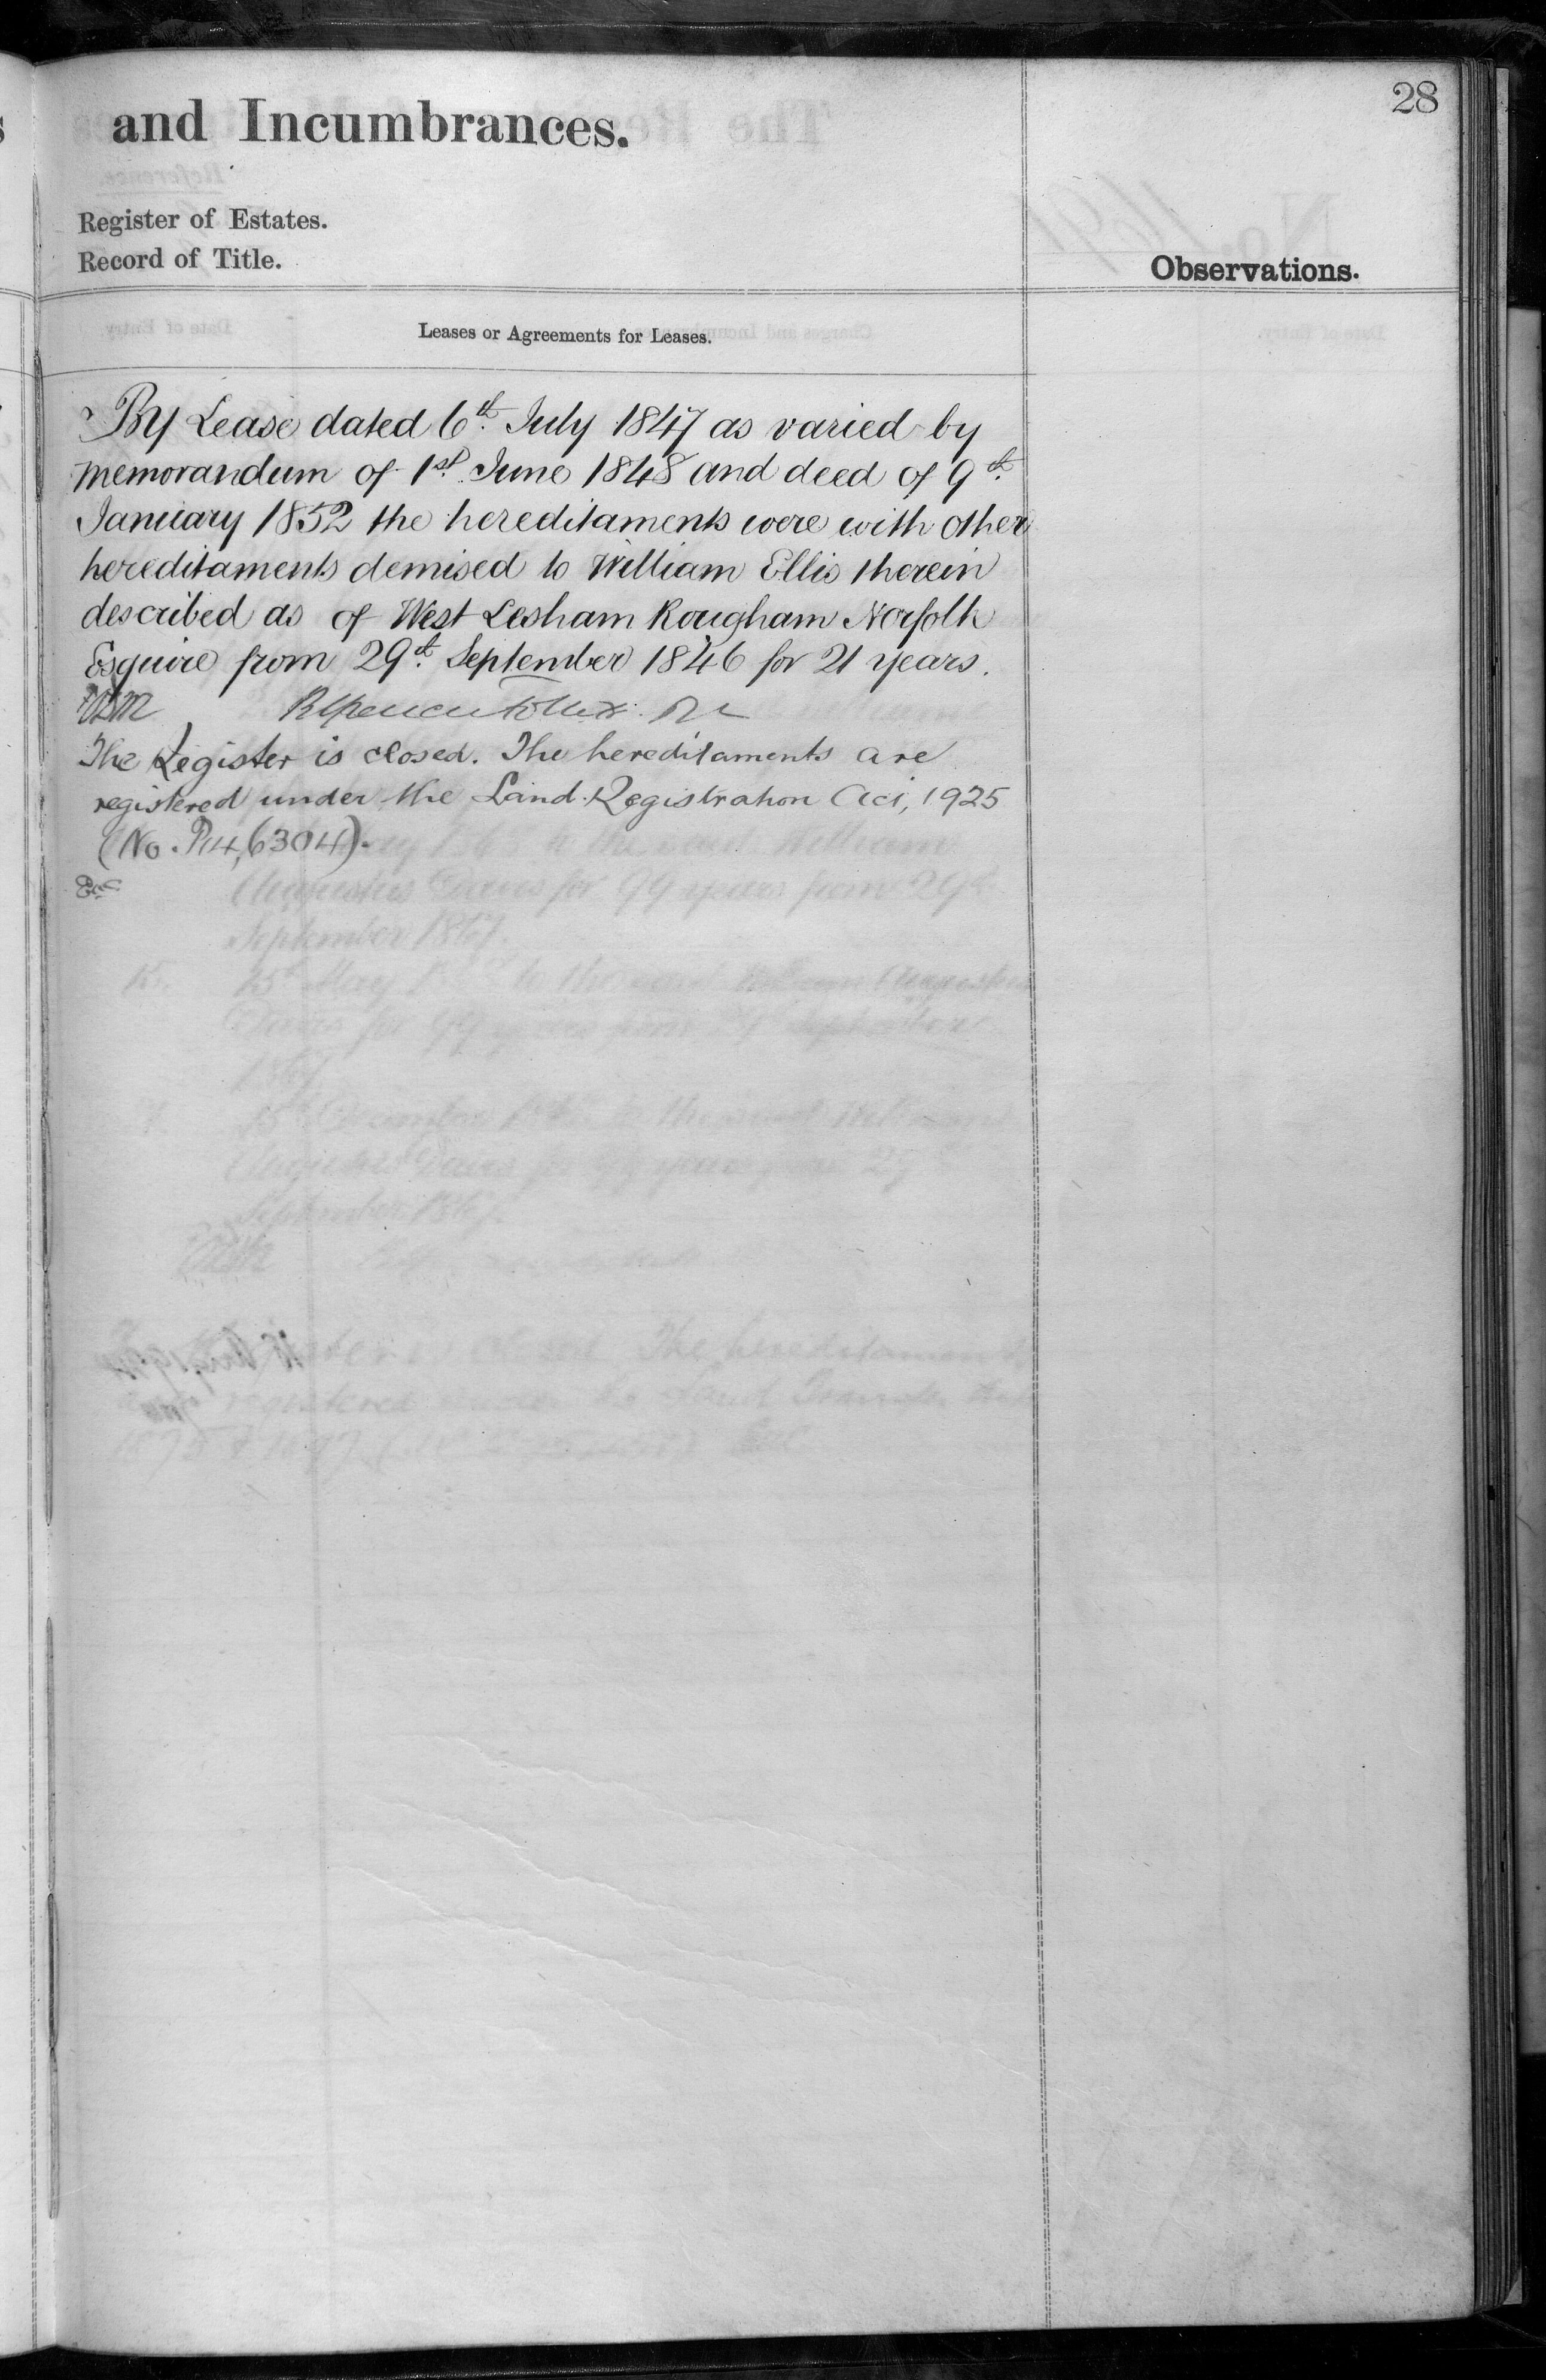 28
and Incumbrances.
Register of Estates.
Record of Title.
Observations.
Leases or Agreements for Leases.
By Lease dated 6th. July 1847 as varied by
memorandum of 1st. June 1848 and deed of 9th.
January 1852 the hereditaments were with other
hereditaments demised to William Ellis therein
described as of West Lesham Rougham Norfolk
Esquire from 29th. September 1846 for 21 years.
The Register is closed. The hereditaments are
registered under the Land Registration Act, 1925
(No. P146304).